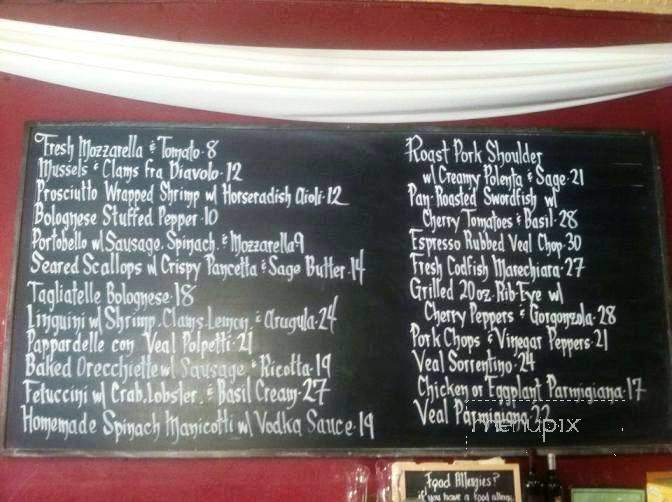 Fresh Mozzarella & Tomato · 8
Mussels & Clams Fra Diavolo · 12
Prosciutto Wrapped Shrimp w/ Horseradish Aioli · 12
Bolognese Stuffed Pepper · 10
Portobello w/ Sausage, Spinach, & Mozzarella 9
Seared Scallops w/ Crispy Pancetta & Sage Butter · 14
Tagliatelle Bolognese · 18
Linguini w/ Shrimp, Clams, Lemon, & Arugula · 24
Pappardelle con Veal Polpetti · 21
Baked Orecchiette w/ Sausage & Ricotta · 19
Fetuccini w/ Crab, Lobster, & Basil Cream · 27
Homemade Spinach Manicotti w/ Vodka Sauce · 19
Roast Pork Shoulder
w/ Creamy Polenta & Sage · 21
Pan-Roasted Swordfish w/
Cherry Tomatoes & Basil · 28
Espresso Rubbed Veal Chop · 30
Fresh Codfish Marechiara · 27
Grilled 20 oz. Rib-Eye w/
Cherry Peppers & Gorgonzola · 28
Pork Chops & Vinegar Peppers · 21
Veal Sorrentino · 24
Chicken or Eggplant Parmigiana · 17
Veal Parmigiana · 22
menupix
Food Allergies?
if you have a food allergy